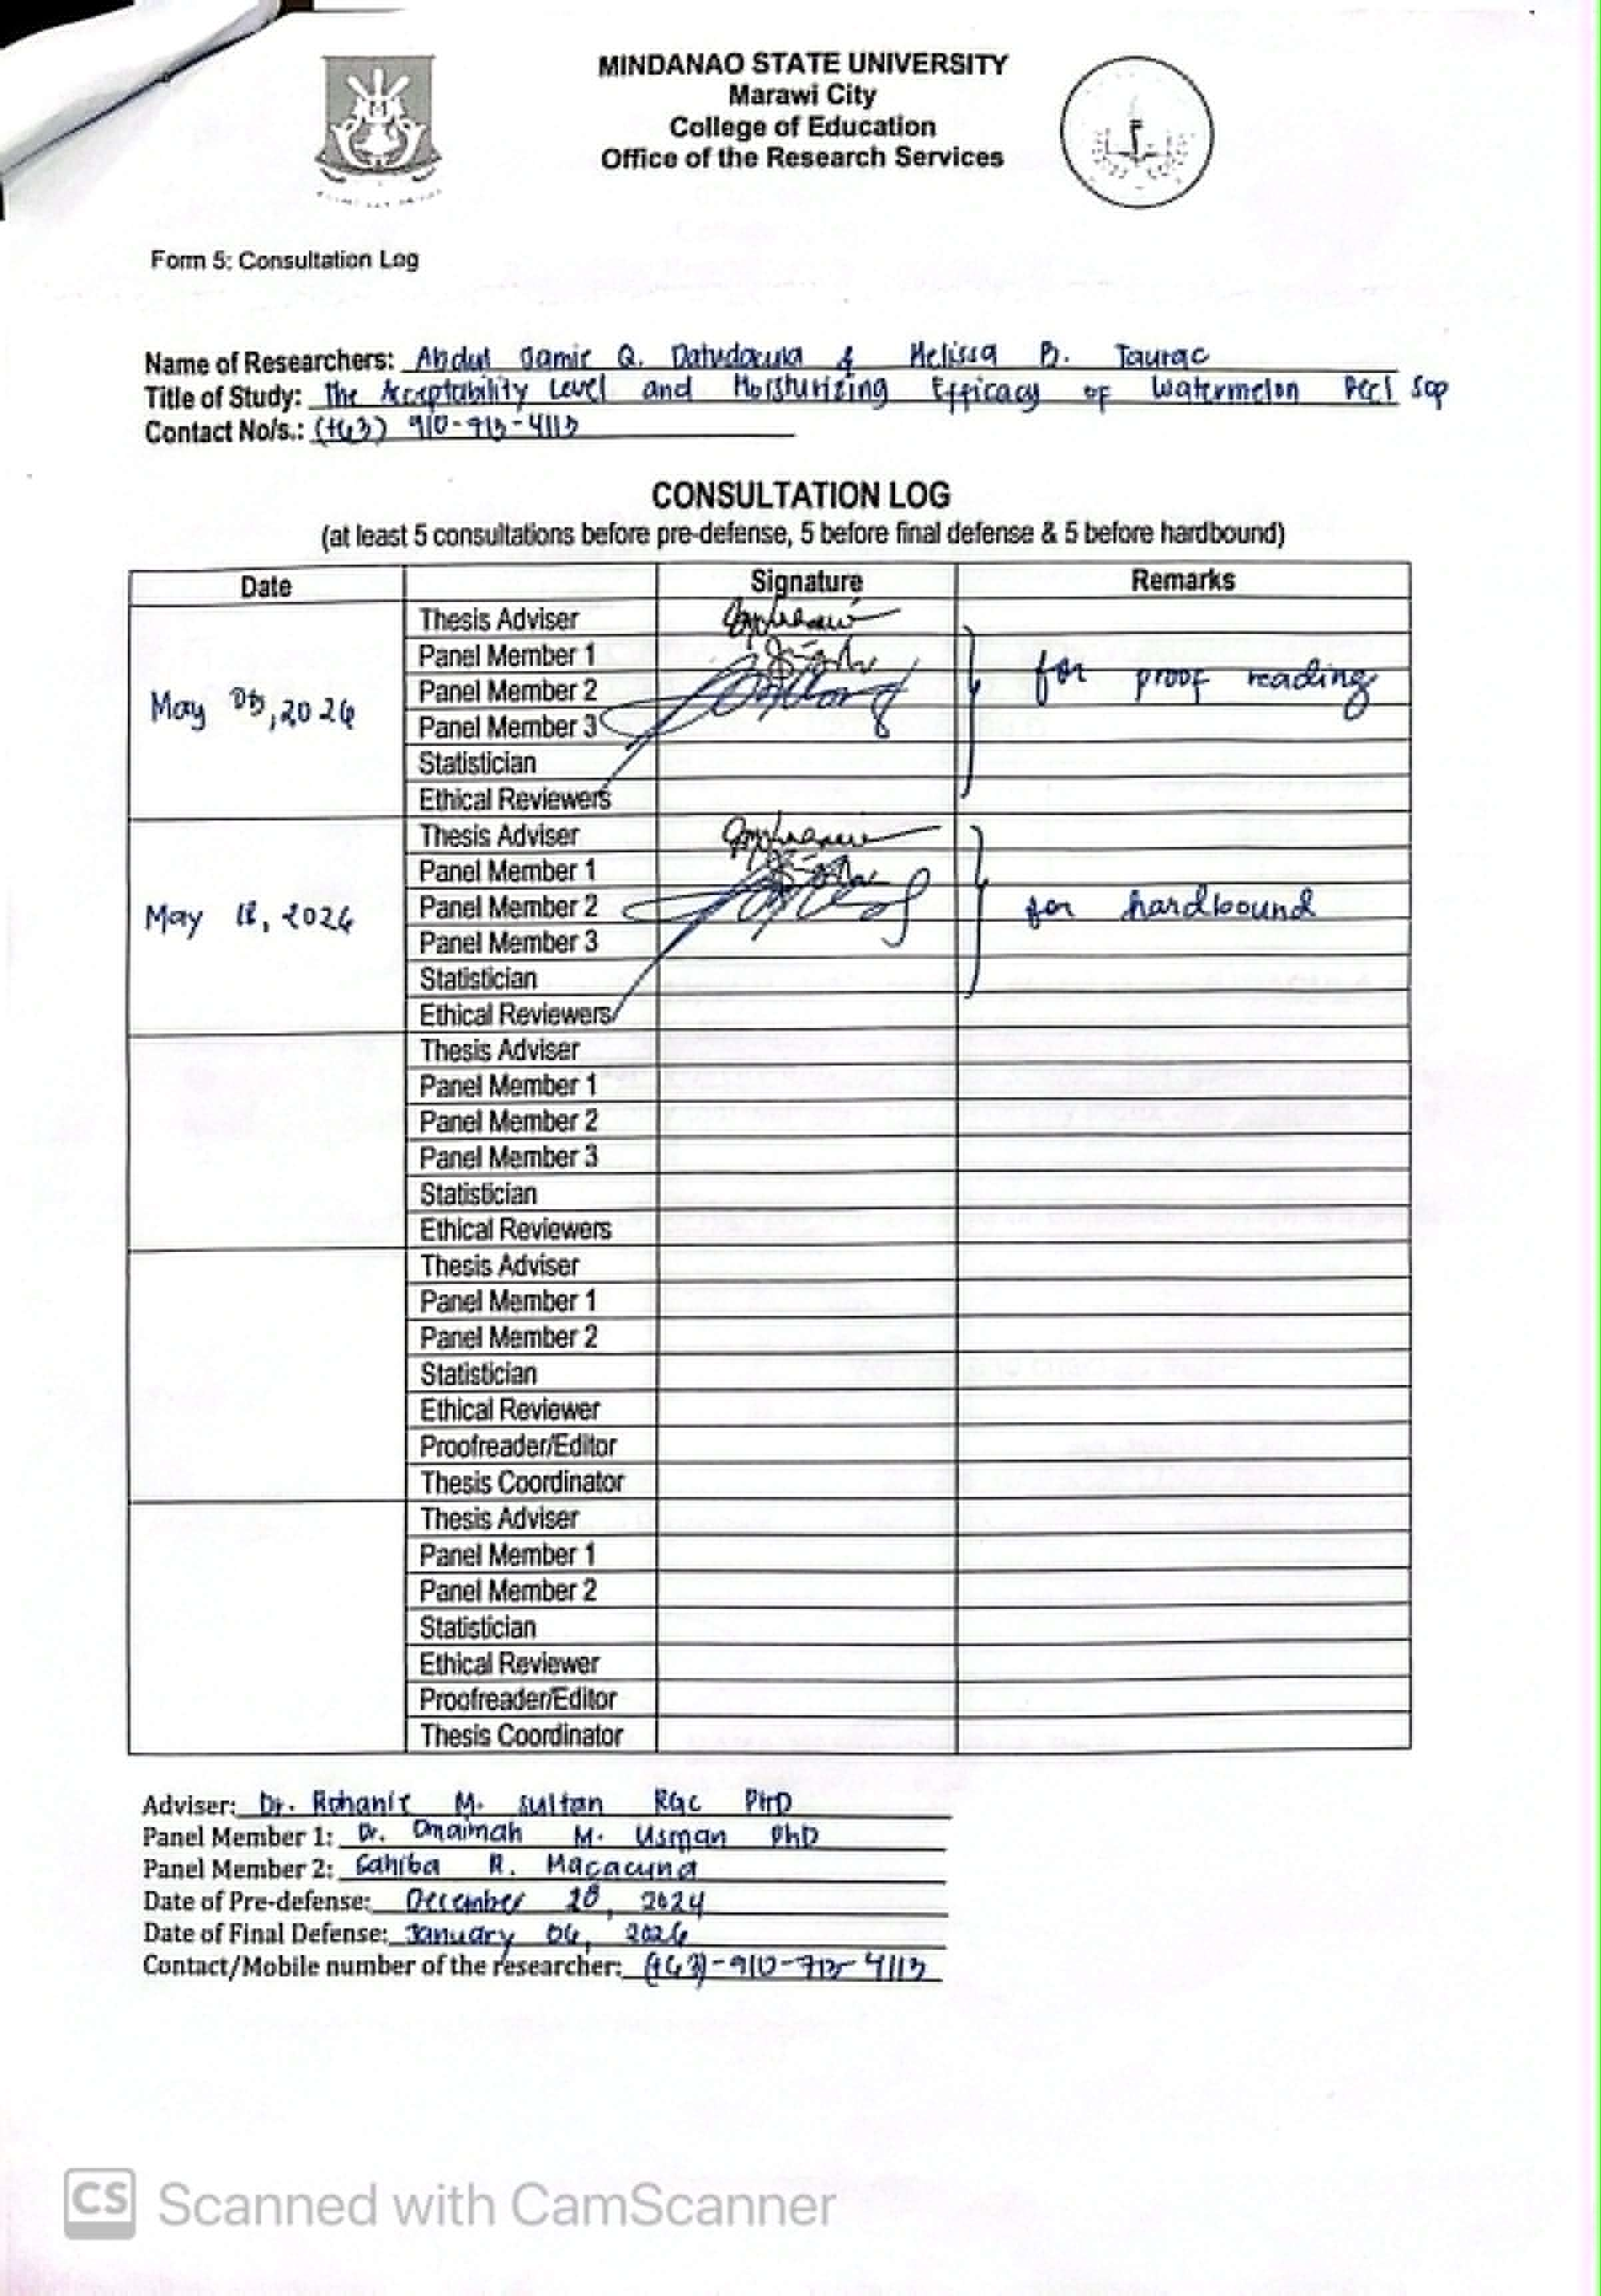 MINDANAO STATE UNIVERSITY
Marawi City
College of Education
Office of the Research Services
Form 5: Consultation Log
Name of Researchers: Abdul Jamie Q. Datudacula & Melissa B. Taurac
Title of Study: The Acceptability Level and Moisturizing Efficacy of Watermelon Peel
Contact No/s.: (+63)
CONSULTATION LOG
(at least 5 consultations before pre-defense, 5 before final defense & 5 before hardbound)
Date Signature Remarks
Thesis Adviser
Panel Member 1
Panel Member 2
Panel Member 3
Statistician
Ethical Reviewers
May 2026
for proof reading
Thesis Adviser
Panel Member 1
Panel Member 2
Panel Member 3
Statistician
Ethical Reviewers
May 18, 2026
for hardbound
Thesis Adviser
Panel Member 1
Panel Member 2
Panel Member 3
Statistician
Ethical Reviewers
Thesis Adviser
Panel Member 1
Panel Member 2
Statistician
Ethical Reviewer
Proofreader/Editor
Thesis Coordinator
Thesis Adviser
Panel Member 1
Panel Member 2
Statistician
Ethical Reviewer
Proofreader/Editor
Thesis Coordinator
Adviser: Dr. Rohanie M. Sultan RGC PhD
Panel Member 1: Dr. Omaimah M. Usman PhD
Panel Member 2: Sahiba R. Macacuna
Date of Pre-defense: December 2024
Date of Final Defense: January 06, 2026
Contact/Mobile number of the researcher: (+63)
CS Scanned with CamScanner